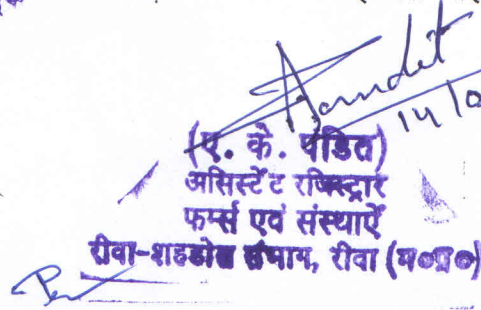 14/0
(ए. के. पंडित)
असिस्टेंट रजिस्ट्रार
फर्म्स एवं संस्थाऐं
रीवा-शहडोल संभाग, रीवा (म०प्र०)